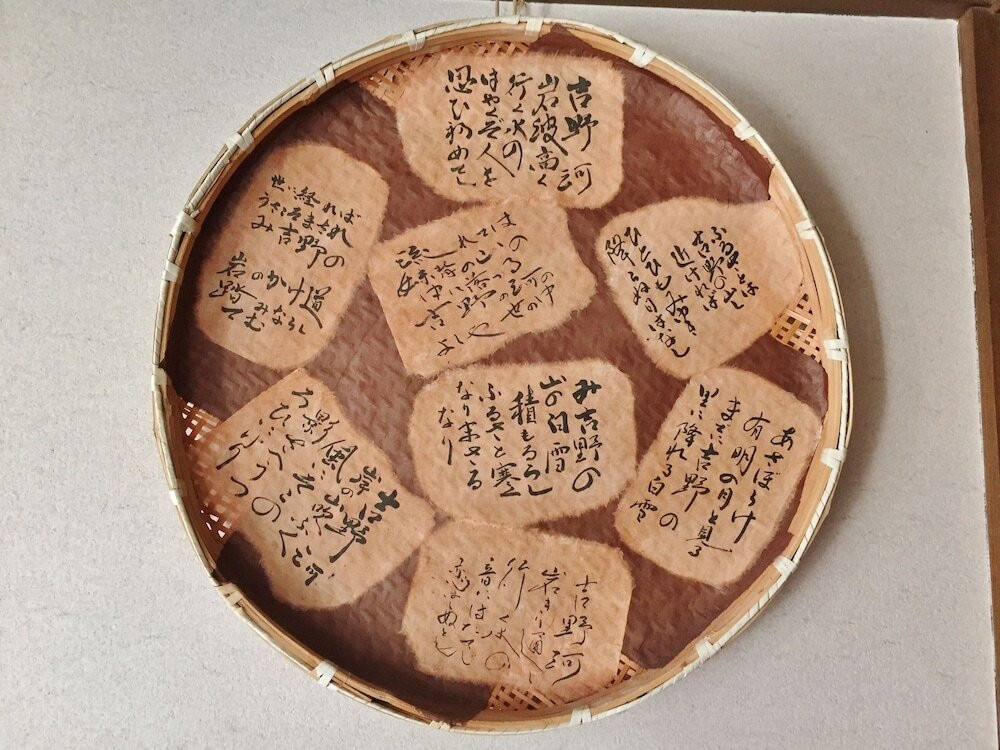 吉野河
岩波高く
行く水の
はやくぞ人を
思ひ初めてし
世に経れば
うさこそまされ
み吉野の
岩のかけ道
踏みならし
てむ
流れては
妹背の山の
中に落つる
吉野の河の
よしや世の中
ふるさとは
吉野の山し
近ければ
ひとひもみ雪
降らぬ日はなし
吉野河
岸の山吹ふく
風にそこの
影さへうつ
ろひにけり
み吉野の
山の白雪
積もるらし
ふるさと寒く
なりまさる
なり
あさぼらけ
有明の月と見る
までに吉野の
里に降れる白雪
吉野河
岩きり通し
行く水の
音にはたてじ
恋は死ぬとも